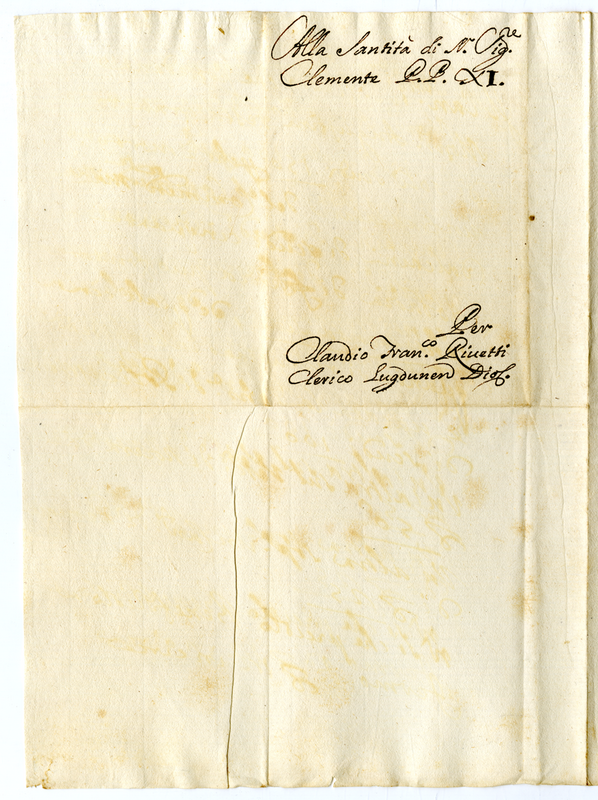 Alla Santità di N.º Sig.re
Clemente P.P. XI.
Per
Claudio Fran.co Riuetti
Clerico Lugdunen Dioc.